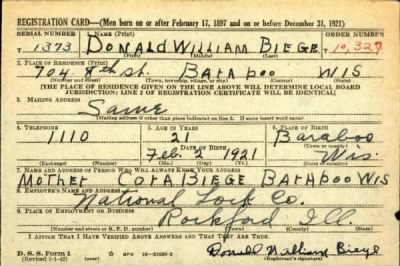 REGISTRATION CARD—(Men born on or after February 17, 1897 and on or before December 31, 1921)
SERIAL NUMBER 1. NAME (Print) ORDER NUMBER
T 1373 DONALD WILLIAM BIEGE 10,327
(First) (Middle) (Last)
2. PLACE OF RESIDENCE (Print)
704 8th St. Baraboo WIS
(Number and street) (Town, township, village, or city) (County) (State)
[THE PLACE OF RESIDENCE GIVEN ON THE LINE ABOVE WILL DETERMINE LOCAL BOARD
JURISDICTION; LINE 2 OF REGISTRATION CERTIFICATE WILL BE IDENTICAL]
3. MAILING ADDRESS
Same
[Mailing address if other than place indicated on line 2. If same insert word same]
4. TELEPHONE 5. AGE IN YEARS 6. PLACE OF BIRTH
1110 21 Baraboo
DATE OF BIRTH (Town or county)
Feb. 2 1921 Wis.
(Exchange) (Number) (Mo.) (Day) (Yr.) (State or country)
7. NAME AND ADDRESS OF PERSON WHO WILL ALWAYS KNOW YOUR ADDRESS
Mother Cora BIEGE Baraboo WIS
8. EMPLOYER'S NAME AND ADDRESS
National Lock Co.
9. PLACE OF EMPLOYMENT OR BUSINESS
Rockford Ill.
(Number and street or R. F. D. number) (Town) (County) (State)
I AFFIRM THAT I HAVE VERIFIED ABOVE ANSWERS AND THAT THEY ARE TRUE.
D. S. S. Form 1
(Revised 1-1-42) (over) GPO 16—21630-2 Donald William Biege